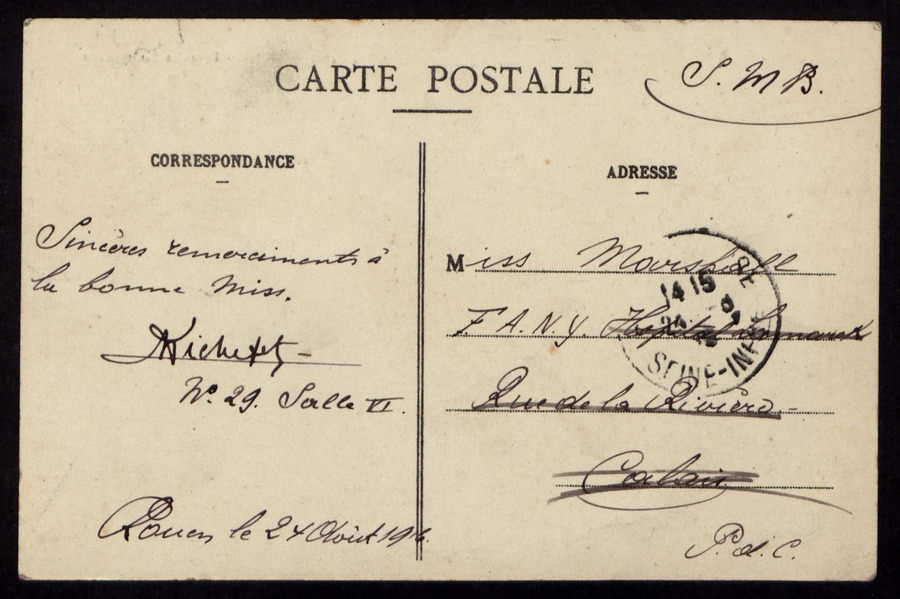 CARTE POSTALE
S. M B.
CORRESPONDANCE
ADRESSE
Sincères remerciments à
la bonne Miss.
Nº 29. Salle VI.
Rouen le 24 Août 1916.
Miss Marshall
F. A. N. Y. Hôpital Lamarck
Rue de la Rivière
Calais
P. d. C.
14 15
24
SEINE-INF